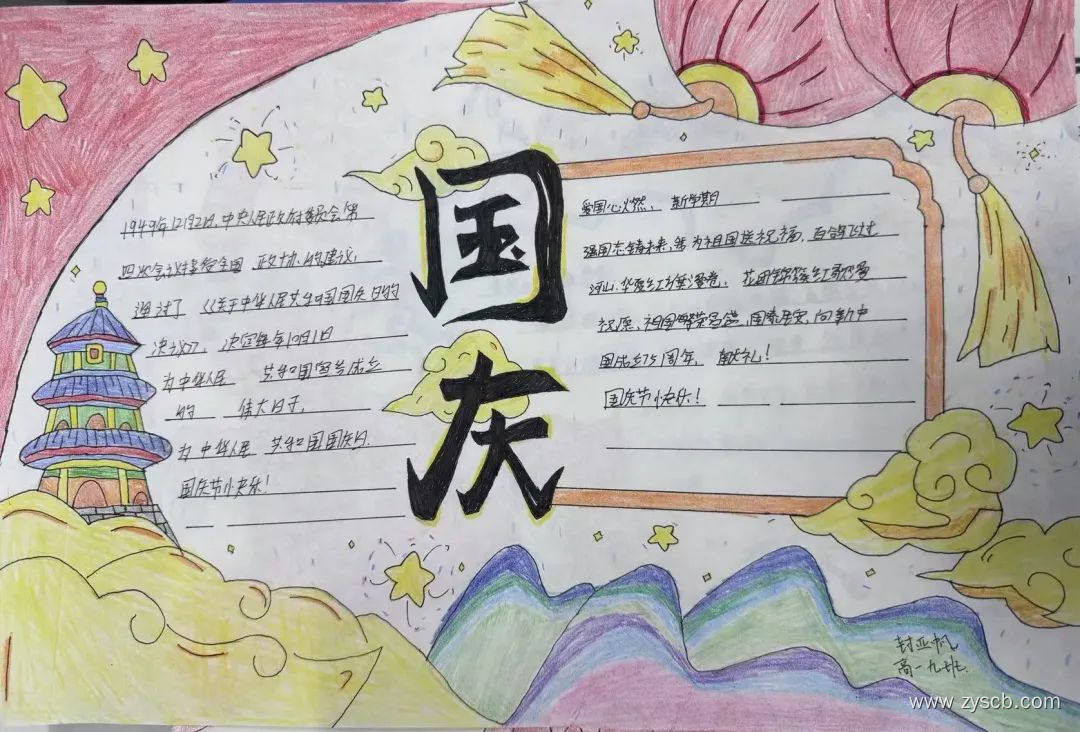 国庆
1949年12月2日,中央人民政府委员会第
四次会议接受全国 政协的建议,
通过了《关于中华人民共和国国庆日的
决议》,决定每年10月1日
为中华人民 共和国宣告成立
的 伟大日子,
为中华人民 共和国国庆日.
国庆节快乐!
爱国心燃、新学期
强国志铸未来,我为祖国送祝福,百鸽飞过
河山,华夏红 漫卷、花团锦簇红歌漫
祝愿、祖国繁荣昌盛,国泰民安,向新中
国成立75周年、献礼!
国庆节快乐!
封亚帆
高一九班
www.zyscb.com